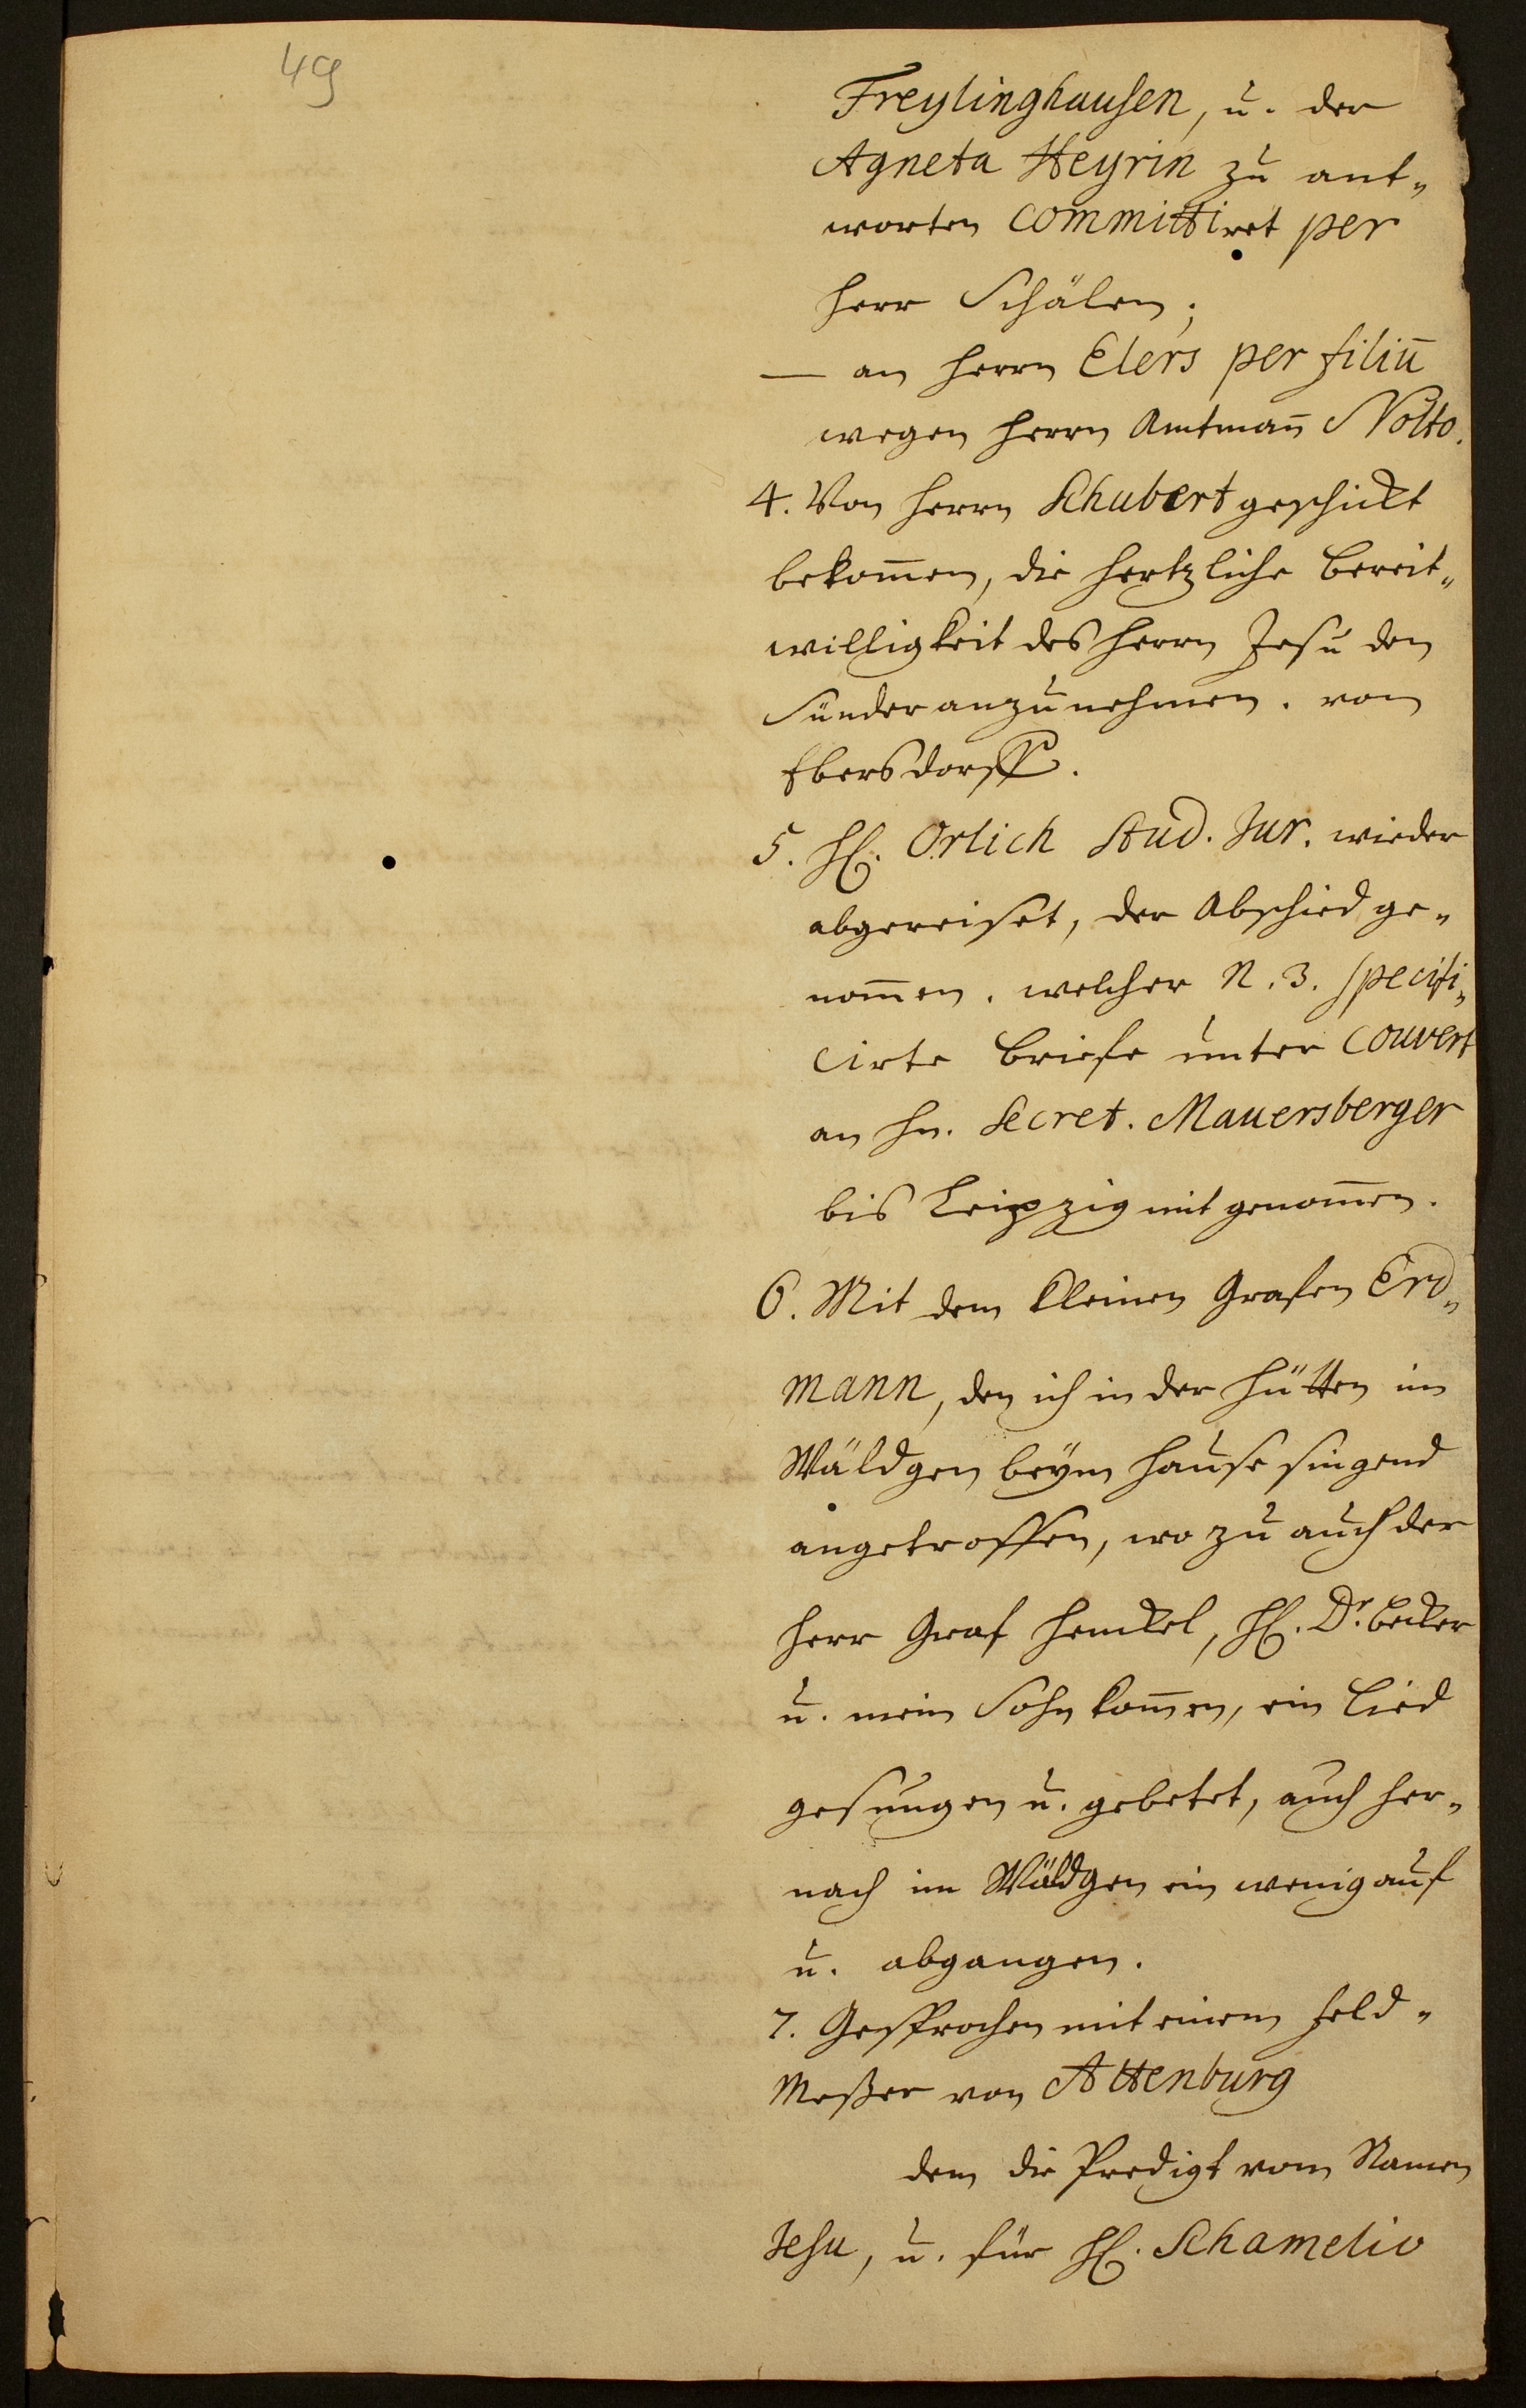 49
Freylinghausen, u. der
Agneta Heyrin zu ant„
worten committiret per
Herr Schälen;
— an Herrn Elers per filiū
wegen Herrn Amtmañ Nolto.
4. Von Herrn Schubert geschickt
bekom̄en, die hertzliche Bereit„
willigkeit des Herrn Jesu den
Sünder anzunehmen. von
Ebersdorff.
5. H. Orlich Stud. Jur. wieder
abgereiset, der Abschied ge„
nom̄en. welcher N. 3. specifi„
cirte Briefe unter Couvert
an Hn. Secret. Mauersberger
bis Leipzig mit genom̄en.
6. Mit dem kleinen Grafen Erd„
mann, den ich in der Hütten im
Wäldgen beym Hause singend
angetroffen, wo zu auch der
Herr Graf Henckel, H. Dr. Becker
u. mein Sohn kom̄en, ein Lied
gesungen u. gebetet, auch her„
nach im Wäldgen ein wenig auf
u. abgangen.
7. Gesprochen mit einem Feld„
Meßer von Altenburg
dem die Predigt vom Namen
Jesu, u. für H. Schamelio